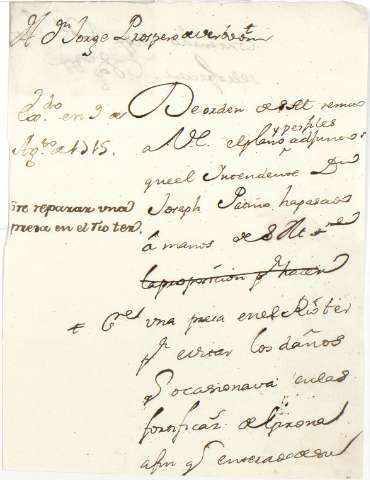 A Dn Jorge Prospero de Verboom
De orden de S. M. remito
a V. E. el plano y perfiles adjuntos
que el Intendente Dn
Joseph Patiño, ha pasado
á manos de S. M.
la proposicion pa hacer
una presa en el Rio ter
pa evitar los daños
q ocasionava en las
fortificaz. de Girona
a fin q enterado de su
en 9 de
Agto de 1715.
sre reparar una
presa en el rio ter.